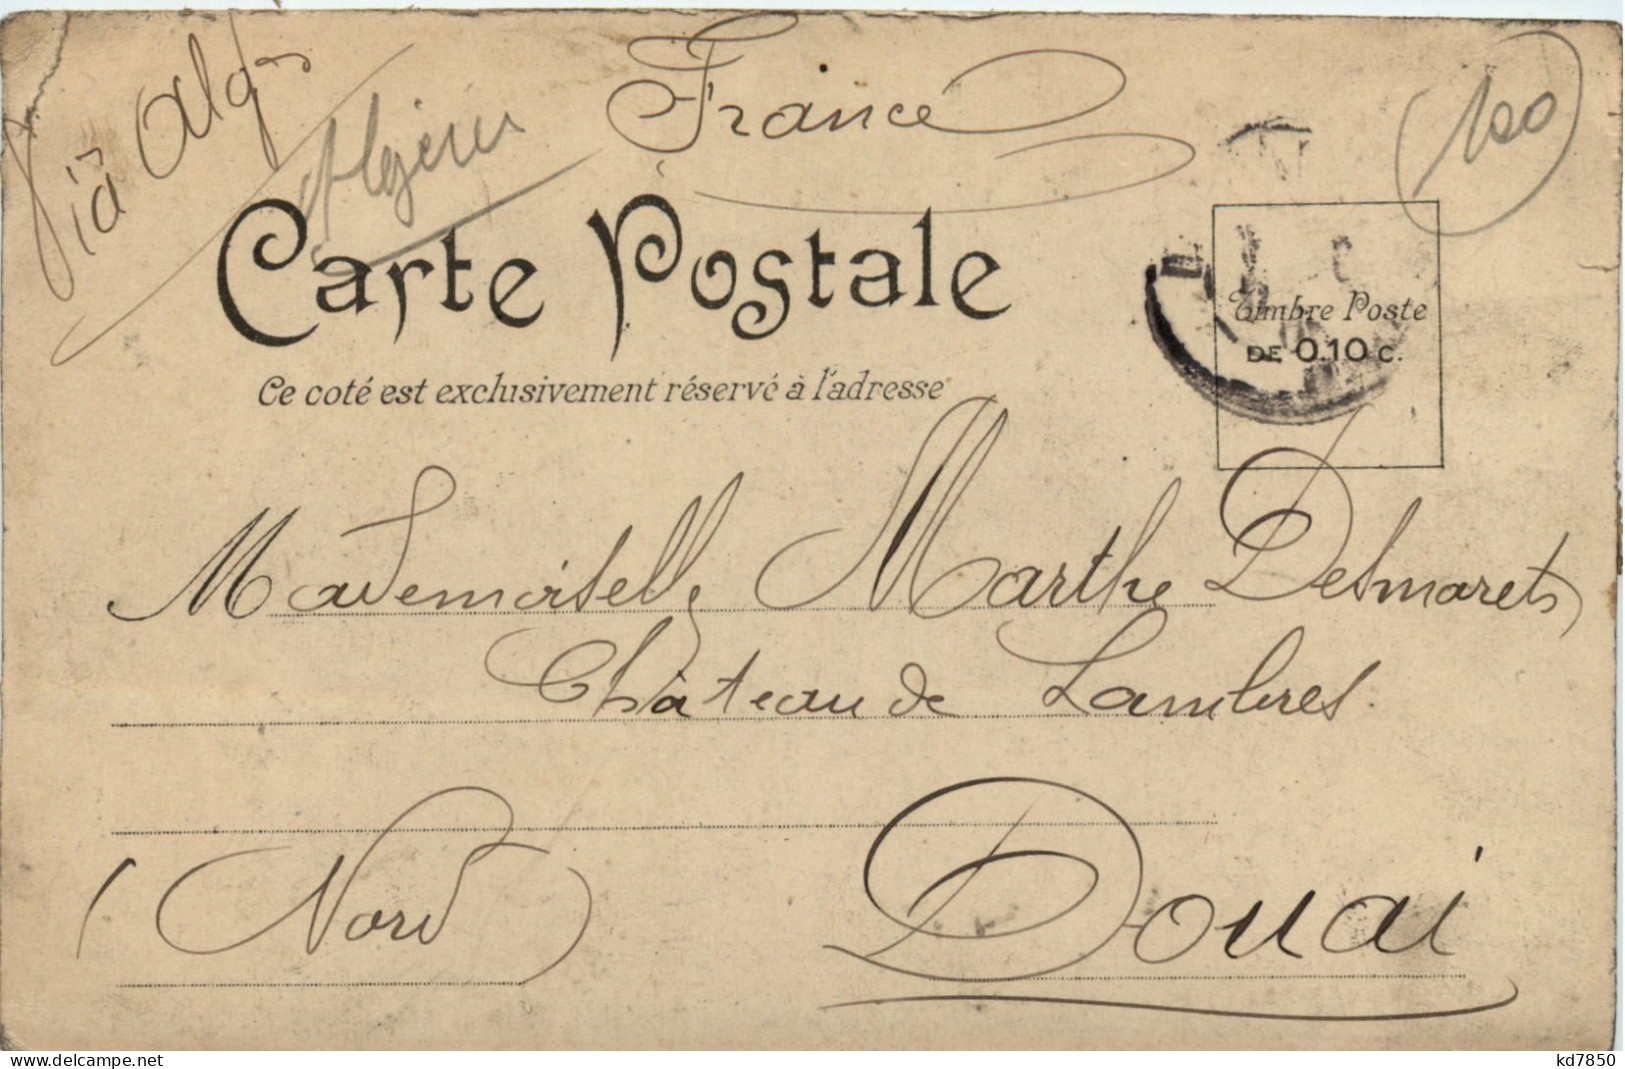 Viâ Alg
Algérie
France
100
Carte Postale
Ce coté est exclusivement réservé à l'adresse
Timbre Poste
DE 0.10 C.
Mademoiselle Marthe Desmarets
Château de Lambres.
(Nord)
Douai
delcampe.net
kd7850